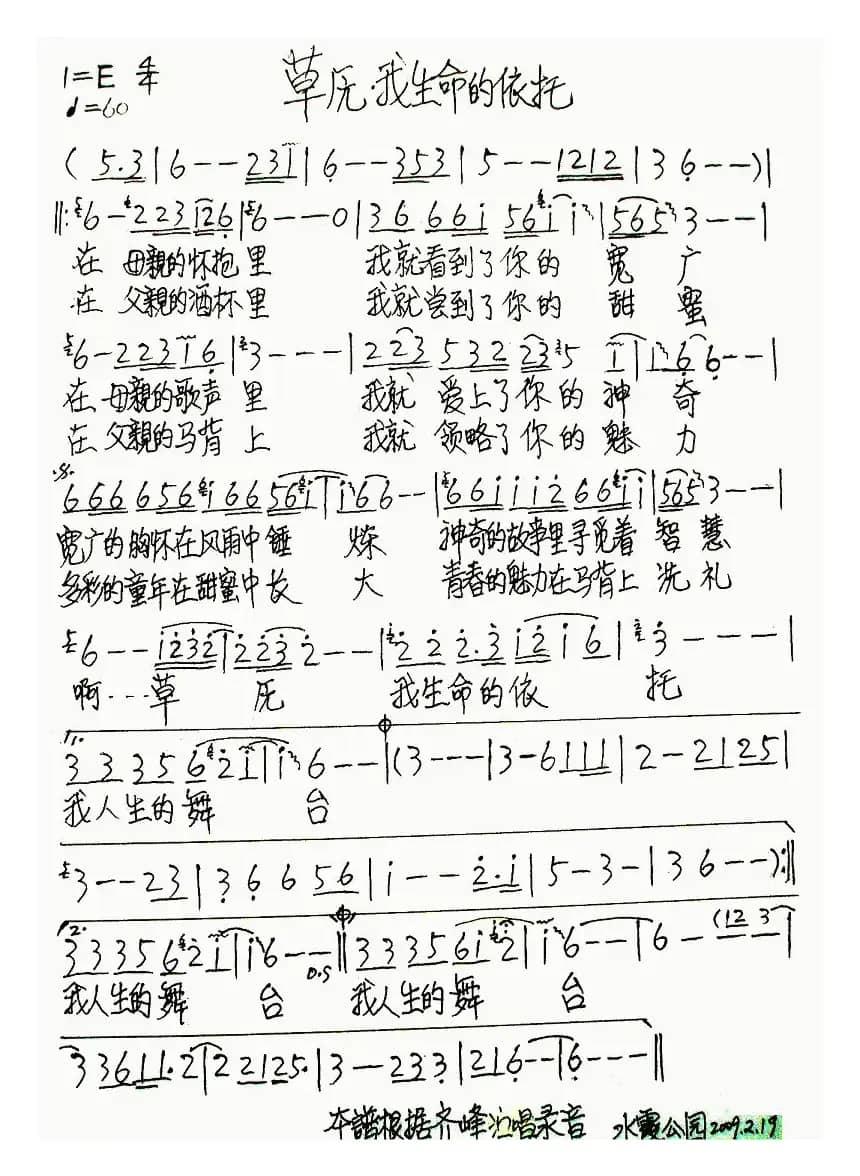 1=E 4/4
♩=60
草原·我生命的依托
( 5.3 | 6 - - 2 3 i | 6 - - 3 5 3 | 5 - - 1 2 1 2 | 3 6 - - ) |
||: 6 - 2 2 3 1 2 6 | 6 - - - 0 | 3 6 6 6 i 5 6 i i | 5 6 5 3 - - - |
在 母親的怀抱里 我就看到了你的 宽 广
在 父親的酒杯里 我就尝到了你的 甜 蜜
6 - 2 2 3 1 6 | 3 - - - | 2 2 3 5 3 2 2 3 5 i | i 6 6 - - |
在 母親的歌声 里 我就 爱上了你的 神 奇
在 父親的马背 上 我就 领略了你的 魅 力
6 6 6 6 5 6 i 6 6 5 6 i | i 6 6 - - | 6 6 i i i 2 6 6 i i | 5 6 5 3 - - |
宽广的胸怀在风雨中锤 炼 神奇的故事里寻觅着 智 慧
多彩的童年在甜蜜中长 大 青春的魅力在马背上 洗 礼
6 - - i 2 3 2 | 2 2 3 2 - - | 2 2 2.3 i 2 i 6 | 3 - - - |
啊···草 原 我生命的依 托
1. 3 3 3 5 6 2 i | i 6 - - | (3 - - - | 3 - 6 1 1 1 | 2 - 2 1 2 5 |
我人生的舞 台
3 - - 2 3 | 3 6 6 5 6 | i - - 2.i | 5 - 3 - | 3 6 - - ) :||
2. 3 3 3 5 6 2 i | i 6 - - D.S || 3 3 3 5 6 i 2 | i 6 - - | 6 - (1 2 3 |
我人生的舞 台 我人生的舞 台
3 3 6 1 1. 2 | 2 2 1 2 5. | 3 - 2 3 3 | 2 1 6 - - | 6 - - - ||
本譜根据齐峰演唱录音 水霞公园2009.2.19